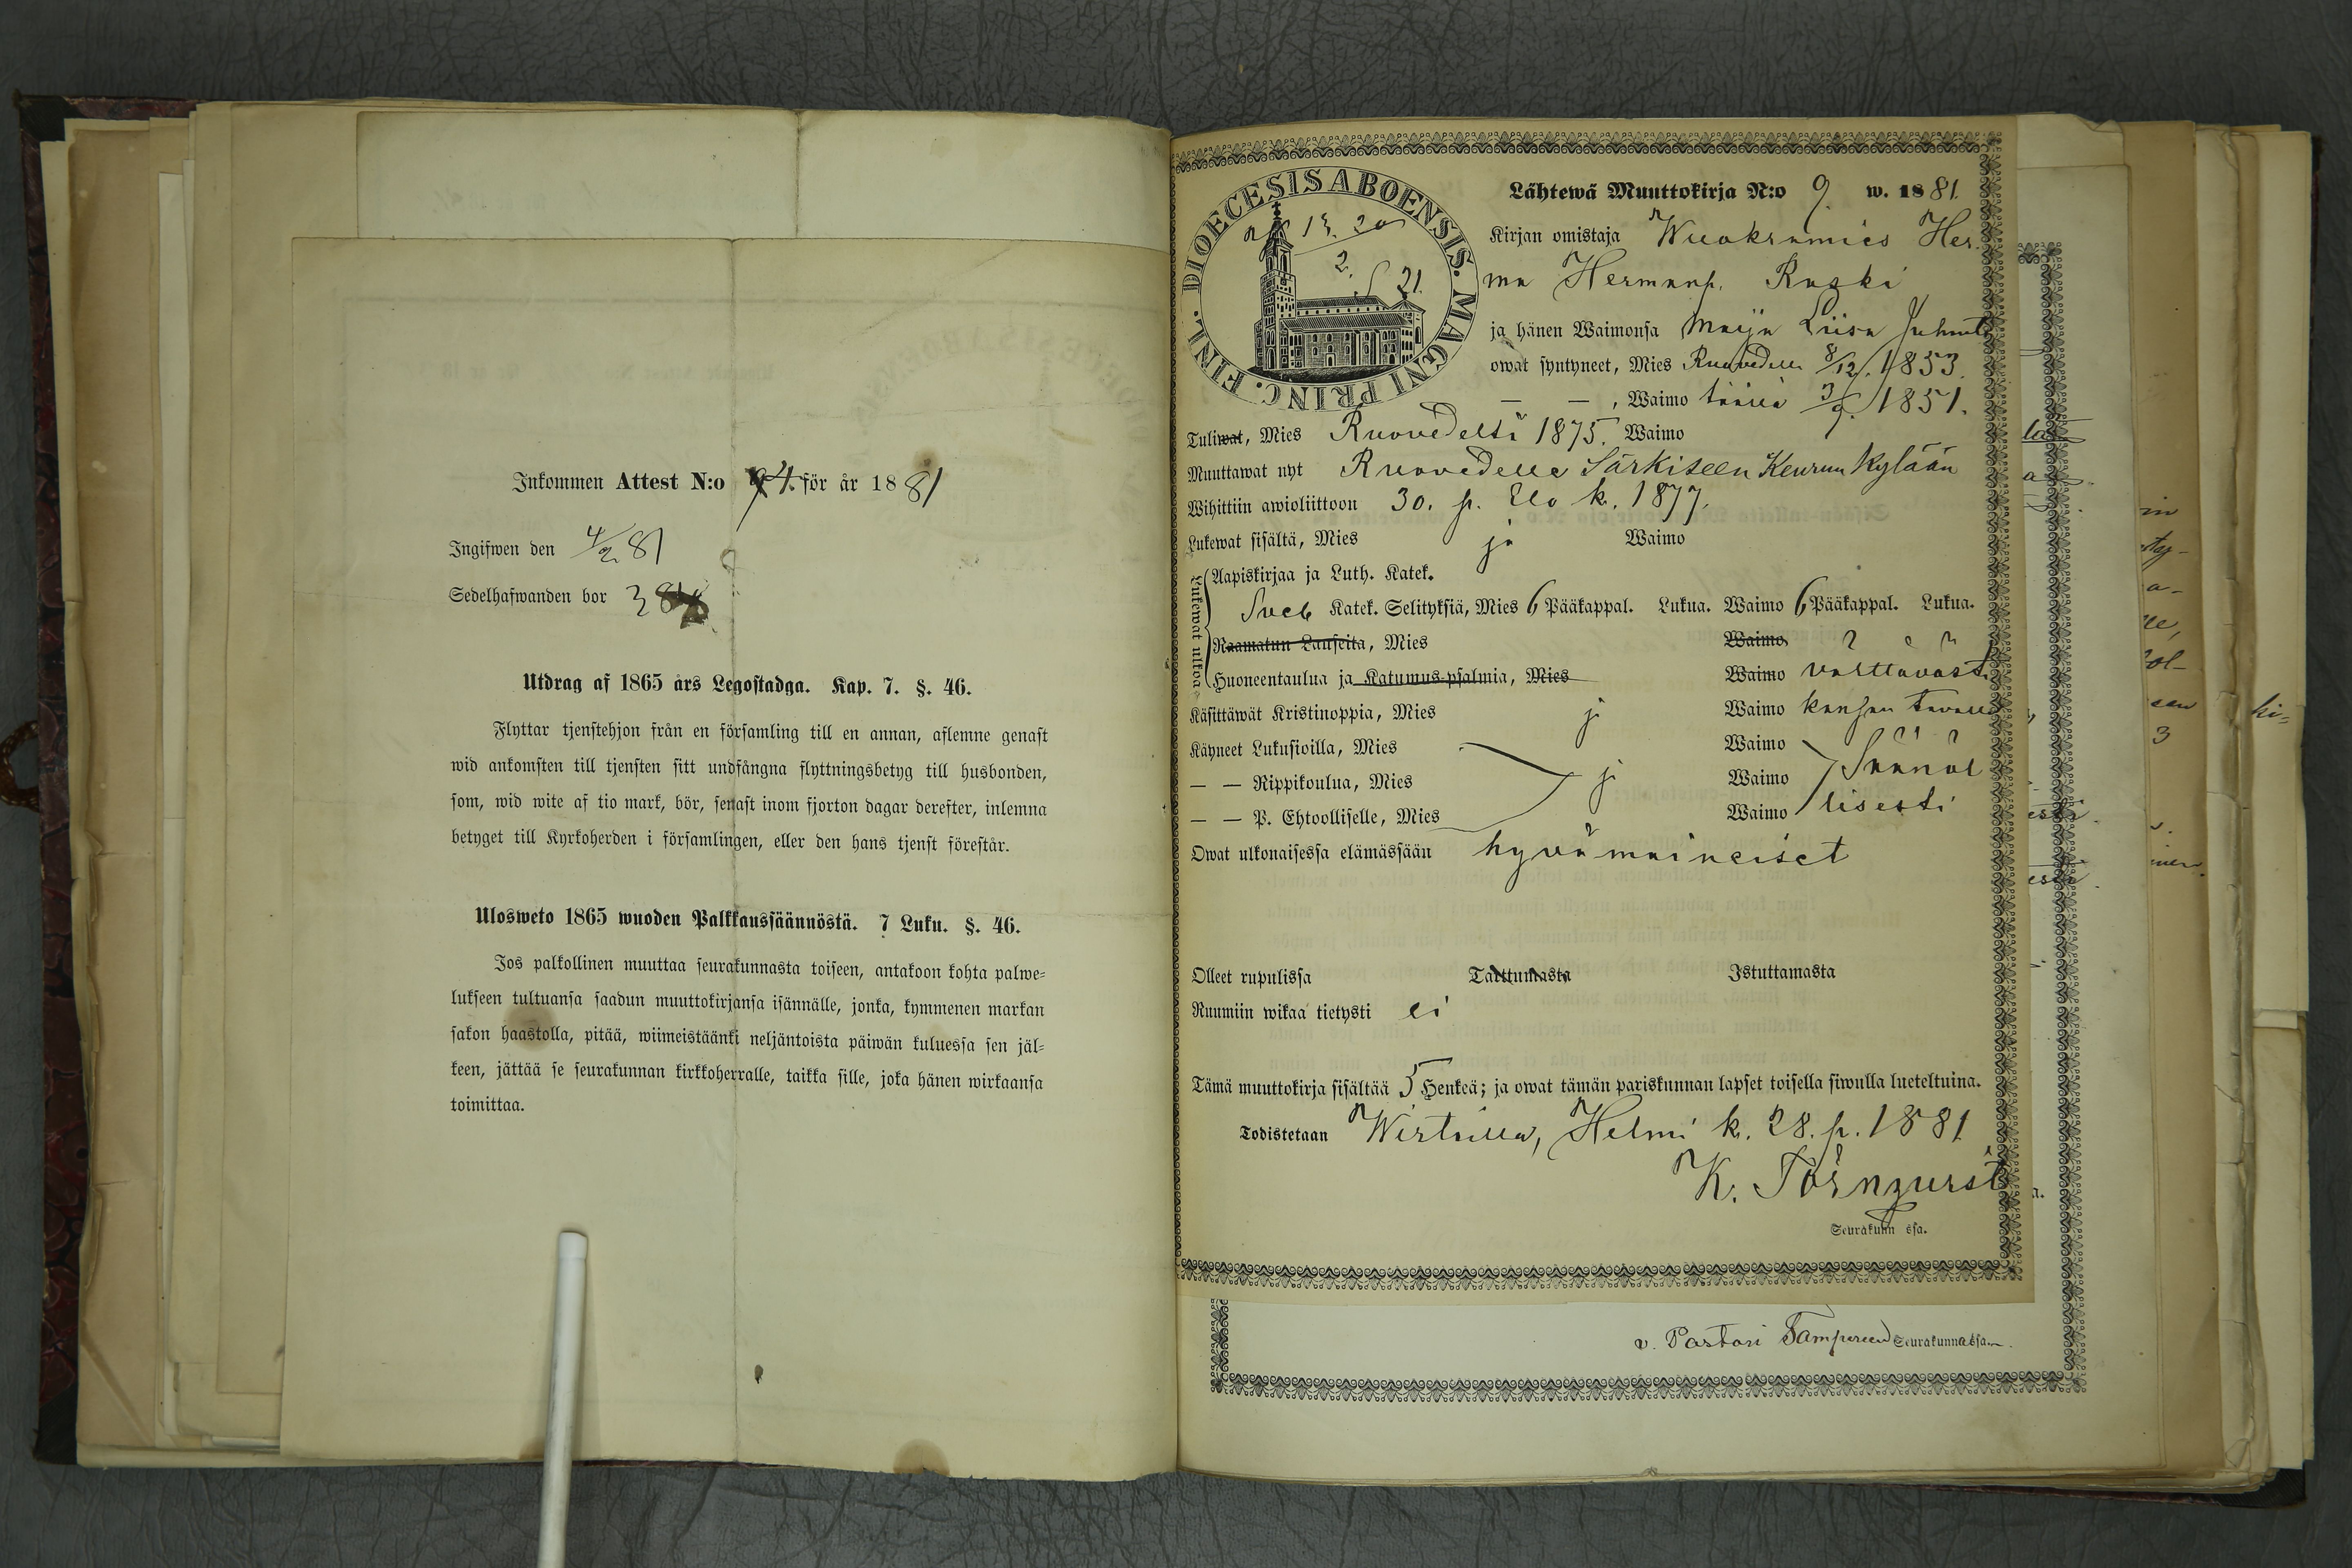 Inkommen Attest N:o 94. för år 1881
Ingifwen den 4/2 81
Sedelhafwanden bor
Utdrag af 1865 års Legostadga. Kap. 7. §. 46.
Flyttar tjenstehjon från en församling till en annan, aflemne genast
wid ankomsten till tjensten sitt undfångna flyttningsbetyg till husbonden,
som, wid wite af tio mark, bör, senast inom fjorton dagar derefter, inlemna
betyget till Kyrkoherden i församlingen, eller den hans tjenst förestår.
Ulosweto 1865 wuoden Palkkaussäännöstä. 7 Luku. §. 46.
Jos palkollinen muuttaa seurakunnasta toiseen, antakoon kohta palwe=
lukseen tultuansa saadun muuttokirjansa isännälle, jonka, kymmenen markan
sakon haastolla, pitää, wiimeistäänki neljäntoista päiwän kuluessa sen jäl=
keen, jättää se seurakunnan kirkkoherralle, taikka sille, joka hänen wirkaansa
toimittaa.
DIOECESIS ABOENSIS. MAGNI PRINC. FINL.
Lähtewä Muuttokirja N:o 9. w. 1881.
Kirjan omistaja Wuokramies Her
ma Hermanp. Raski
ja hänen Waimonsa Maija Liisa Juhant.
owat syntyneet, Mies Ruovedellä 8/12. 1853.
— — , Waimo täällä 3/9. 1851.
Tuliwat, Mies Ruovedeltä 1875. Waimo
Muuttawat nyt Ruovedelle Särkiseen Keurun kylään
Wihittiin awioliittoon 30. p. Elo k. 1877.
Lukewat sisältä, Mies ja Waimo
Lukewat ulkoa
Aapiskirjaa ja Luth. Katek.
Sveb Katek. Selityksiä, Mies 6 Pääkappal. Lukua. Waimo 6 Pääkappal. Lukua.
Raamatun Lauseita, Mies Waimo
Huoneentaulua ja Katumus-psalmia, Mies Waimo välttävästi
Käsittäwät Kristinoppia, Mies ja Waimo kansan tavalla
Käyneet Lukusioilla, Mies Waimo
— — Rippikoulua, Mies ja Waimo Säänöl
— — P. Ehtoolliselle, Mies Waimo lisesti
Owat ulkonaisessa elämässään hyvämaineiset
Olleet rupulissa Tarttumasta Istuttamasta
Ruumiin wikaa tietysti ei
Tämä muuttokirja sisältää 5 Henkeä; ja owat tämän pariskunnan lapset toisella siwulla lueteltuina.
Todistetaan Wirtailla, Helmi k. 28. p. 1881
K. Törnqurst
Seurakunn ssa.
v. Pastori Tampereen Seurakunnassa.